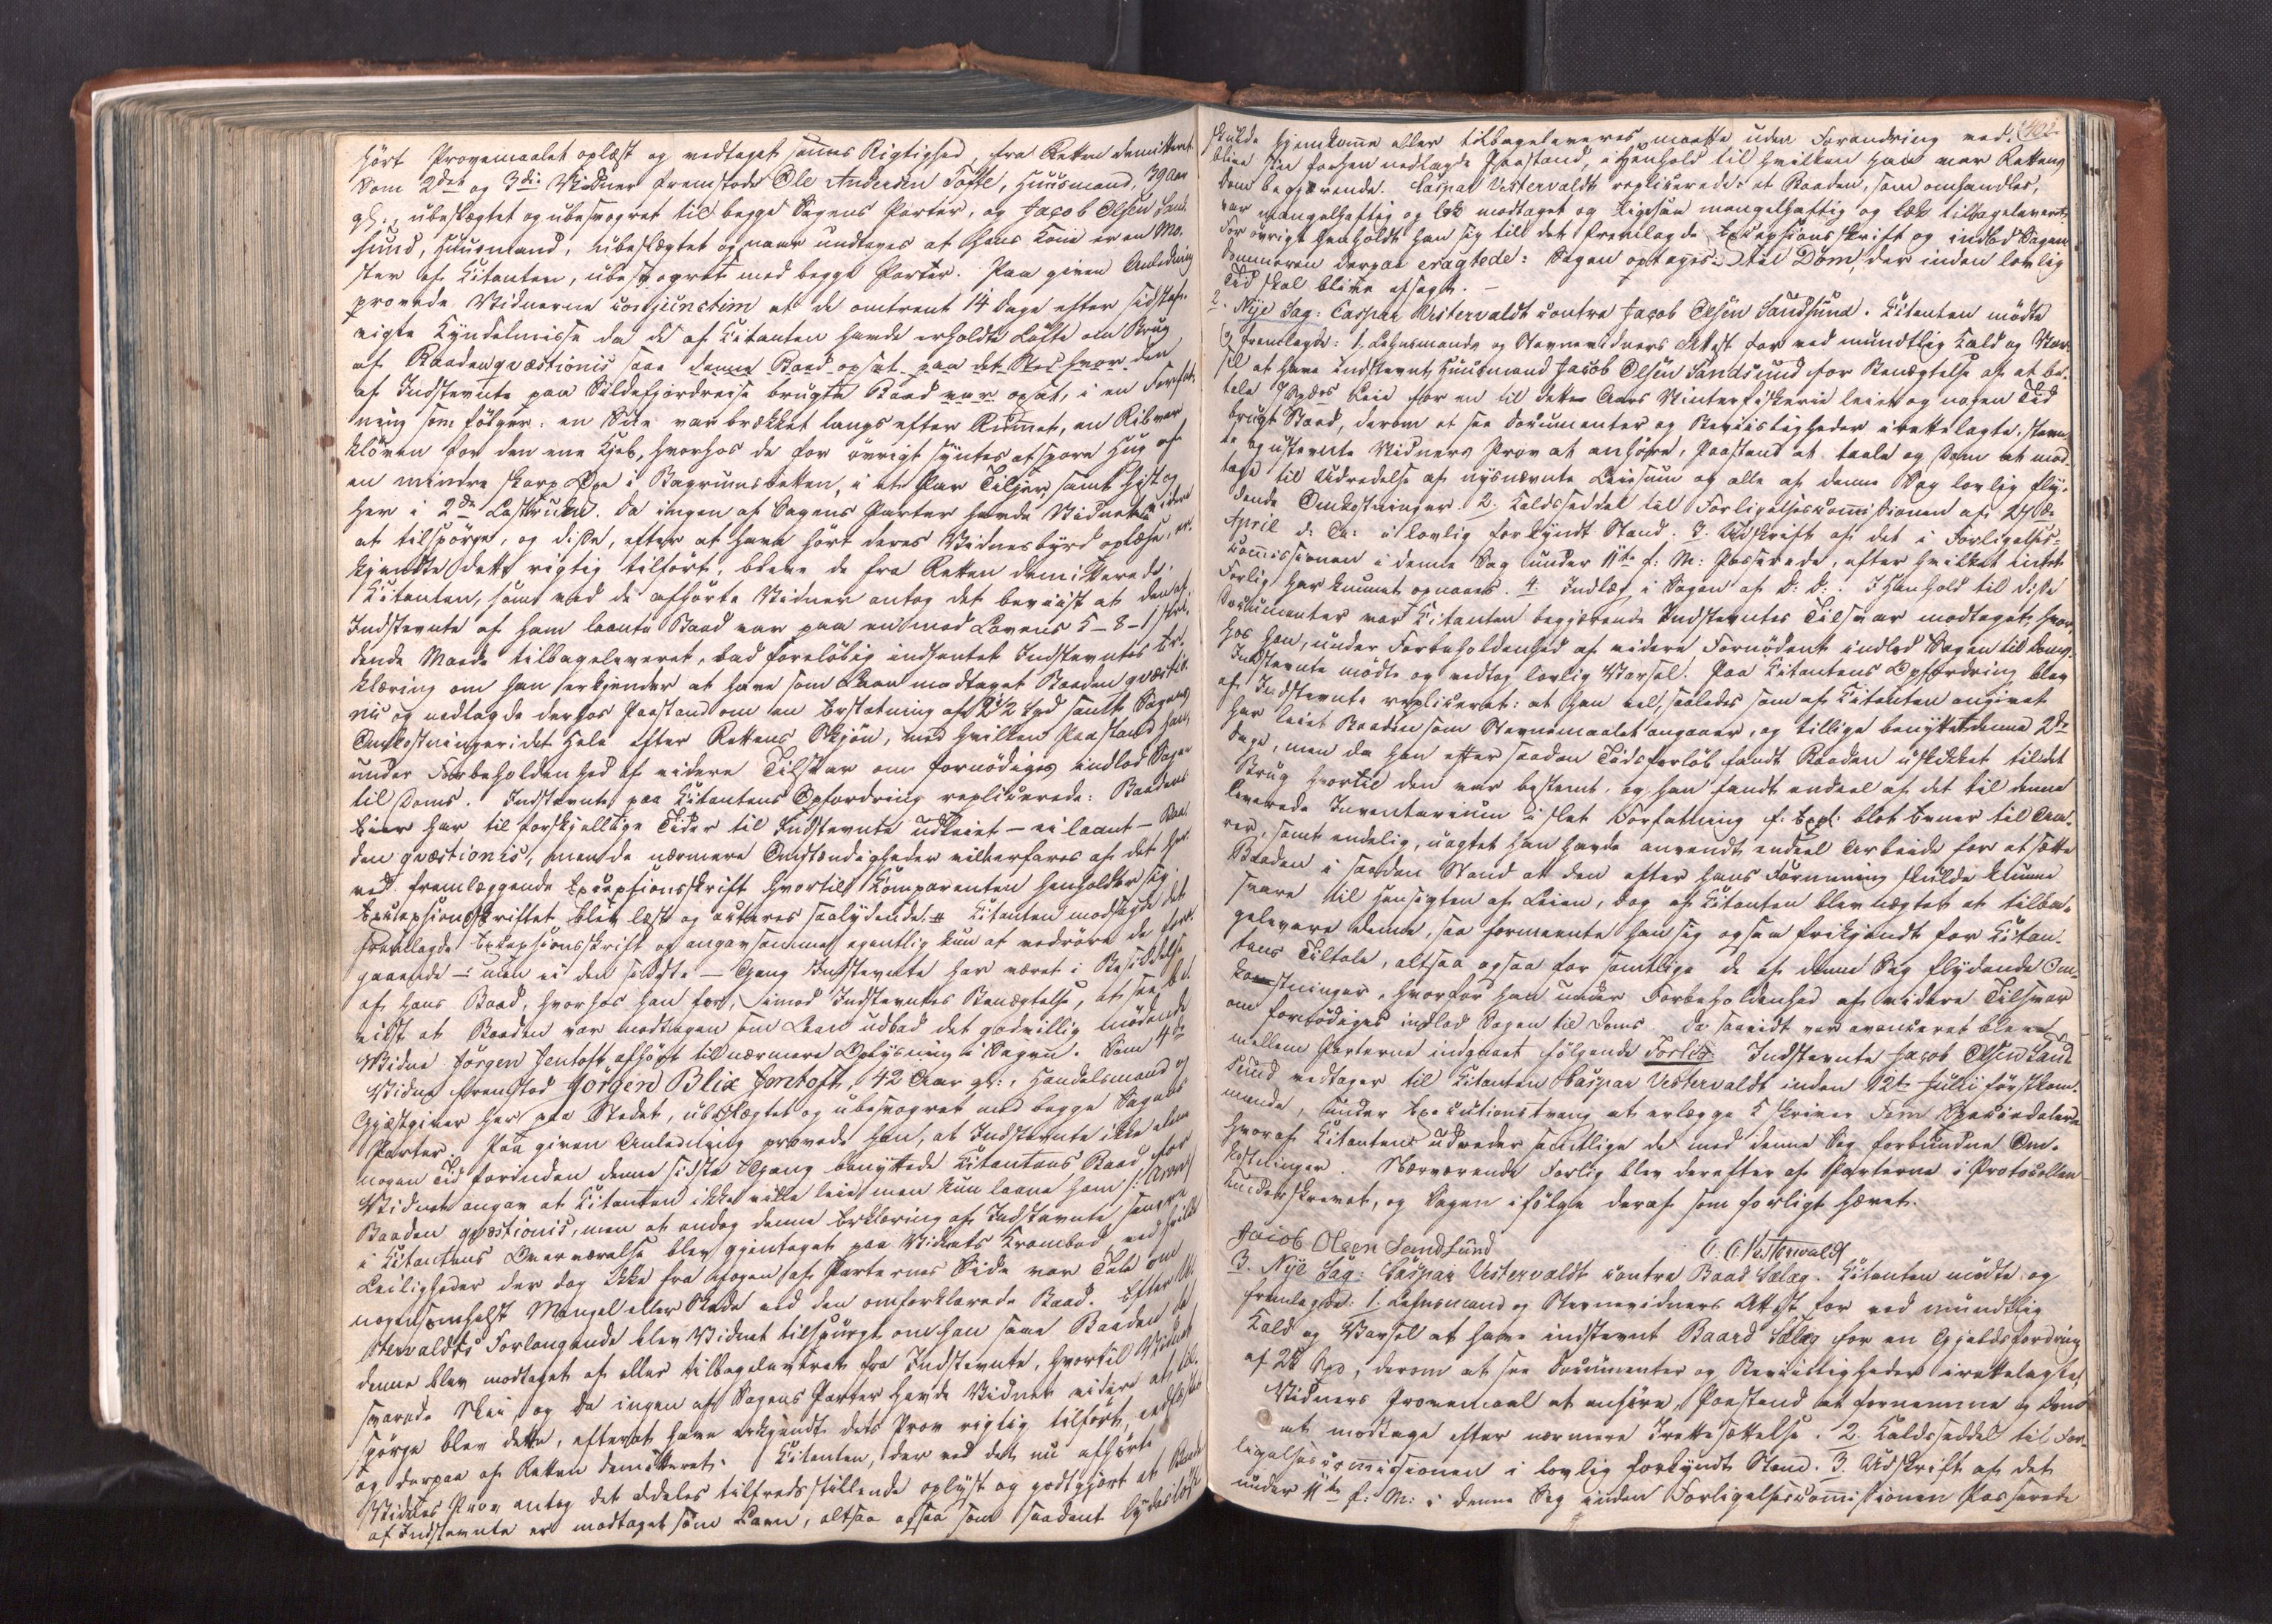 hørt Provemaalet oplæst og vedtaget sammes Rigtighed, fra Retten demitteret.
Som 2det og 3die Vidner fremstode Ole Andersen Tofte, Huusmand, 39 Aar
gl., ubeslægtet og ubesvogret til begge Sagens Parter, og Jacob Olsen Sand-
sund, Huusmand, ubeslægtet og naar undtages at hans Kone er en Mo-
ster af Citanten, ubesvogret med begge Parter. Paa given Anledning
provede Vidnerne conjunctim at de omtrent 14 Dage efter sidstaf-
vigte Kyndelmisse da de af Citanten havde erholdt Løfte om Brug
af Baaden qvæstionis saae denne Baad opsat paa det Sted hvor den
af Indstevnte paa Sildefjordreise brugte Baad var opsat, i en Forfat-
ning som følger: en Side var brækket langs efter Rummet, en Rib var
kløven for den ene Kjeb, hvorhos de for øvrigt syntes at spore Hug af
en mindre skarp Øxe i Bagrumsbetten, i et Par Tiljer, samt hist og
her i 2de Lastrum. Da ingen af Sagens Parter havde Vidnet videre
at tilspørge, og disse, efter at have hørt deres Vidnesbyrd oplæse, er-
kjendte dette rigtig tilført, bleve de fra Retten demitterede.
Citanten, som ved de afhørte Vidner antog det beviist at den af
Indstevnte af ham laante Baad var paa en mod Lovens 5-8-1 stri-
dende Maade tilbageleveret, bad foreløbig indhentet Indstevntes Er-
klæring om han erkjender at have som Laan modtaget Baaden qvæstio-
nis og nedlagde derhos Paastand om en Erstatning af 2 1/2 Spd samt Sagens
Omkostninger i det Hele efter Rettens Skjøn, med hvilken Paastand han,
under Forbeholdenhed af videre Tilsvar om fornødiges indlod Sagen
til Doms. Indstevnte paa Citantens Opfordring replicerede: Baadens
Eier har til forskjellige Tider til Indstevnte udleiet – ei laant – Baa-
den qvæstionis, men de nærmere Omstændigheder vil erfares af det her
ved fremlæggende Exceptionsskrift hvortil Comparenten henholder sig.
Exceptionsskriftet blev læst og acteres saalydende: # Citanten modsagde det
fremlagde Exceptionsskrift og angav sammes egentlig kun at vedrøre de fore-
gaaende – men ei den sidste – Gang Indstevnte har været i Besiddelse
af hans Baad, hvorhos han for, imod Indstevntes Benægtelse, at see be-
viist at Baaden var modtagen som Laan udbad det godvillig mødende
Vidne Jørgen Jentoft afhørt til nærmere Oplysning i Sagen. Som 4de
Vidne fremstod Jörgen Blix Jentoft, 42 Aar gl., Handelsmand og
Gjæstgiver her paa Stedet, ubeslægtet og ubesvogret med begge Sagens
Parter. Paa given Anledning provede han, at Indstevnte ikke alene
nogen Tid forinden denne sidste Gang benyttede Citantens Baad for
Vidnet angav at Citanten ikke ville leie men kun laane ham
Baaden qvæstionis, men at endog denne Erklæring af Indstevnte senere
i Citantens Overværelse blev gjentaget paa Vidnets Krambod ved hvilke
Leiligheder der dog ikke fra nogen af Parternes Side var Tale om
nogensomhelst Mangel eller Skade ved den omforklarede Baad. Efter We-
stervaldts Forlangende blev Vidnet tilspurgt om han saae Baaden da
denne blev modtaget af eller tilbageleveret fra Indstevnte, hvortil Vidnet
svarede Nei, og da ingen af Sagens Parter havde Vidnet videre at til-
spørge blev dette, efterat have erkjendt dets Prov rigtig tilført,
og derpaa af Retten demitteret. Citanten, der ved det nu afhørte
Vidnes Prov antog det aldeles tilfredsstillende oplyst og godtgjort at Baaden
af Indstevnte er modtaget som Laan, altsaa ogsaa som saadant
skulde hjemkomme eller tilbageleveres maatte uden Forandring ved-
blive sin forhen nedlagde Paastand, i Henhold til hvilken han var Rettens
Dom begjærende. Caspar Vestervaldt replicerede: at Baaden, som omhandles,
var mangelhaftig og læk modtaget og ligesaa mangelhaftig og læk tilbageleveret.
For øvrigt henholdt han sig til det fremlagde Exceptionsskrift og indlod Sagen.
Dommeren derpaa eragtede: Sagen optages til Dom, der inden lovlig
Tid skal blive afsagt. –
2. Nye Sag: Caspar Vestervaldt contra Jacob Olsen Sandsund. Citanten mødte
og fremlagde: 1. Lehnsmands og Stevnevidners Attest for ved mundtlig Kald og Var-
sel at have indstevnt Huusmand Jacob Olsen Sandsund for Benægtelse af at be-
tale Leie for en til dette Aars Vinterfiskerie leiet og nogen Tid
brugt Baad, derom at see Documenter og Beviisligheder irettelagte, stevn-
te og ustevnte Vidners Prov at anhøre, Paastand at taale og Dom at mod-
tage til Udredelse af nysnævnte Leiesum og alle af denne Sag lovlig fly-
dende Omkostninger. 2. Kaldsseddel til Forligelsescommissionen af 24de
April d: A: i lovlig forkyndt Stand. 3. Udskrift af det i Forligelses-
Commissionen i denne Sag under 11te f: M: Passerede, efter hvilket intet
Forlig har kunnet opnaaes. 4. Indlæg i Sagen af D: D:. I Henhold til disse
Documenter var Citanten begjærende Indstevntes Tilsvar modtaget, hvor-
hos han, under Forbeholdenhed af videre Fornødent indlod Sagen til Doms.
Indstevnte mødte og vedtog lovlig Varsel. Paa Citantens Opfordring blev
af Indstevnte repliceret: at han vel, saaledes som af Citanten angivet
har leiet Baaden som Stevnemaalet angaaer, og tillige benyttet denne 2de
Dage, men da han efter saadan Tidsforløb fandt Baaden uskikket til det
Brug hvortil den var bestemt, og han fandt endeel af det til denne
leverede Inventarium i slet Forfatning f: Expl: blot Evner til Aa-
rer, samt endelig, uagtet han havde anvendt endeel Arbeide for at sætte
Baaden i saadan Stand at den efter hans Formening skulde kunne
svare til Hensigten af Leien, dog af Citanten blev nægtet at tilba-
gelevere denne, saa formeente han sig ogsaa frikjendt for Citan-
tens Tiltale, altsaa ogsaa for samtlige de af denne Sag flydende Om-
kostninger, hvorfor han under Forbeholdenhed af videre Tilsvar
om fornødiges indlod Sagen til Doms. Da saavidt var avanceret blev
mellem Parterne indgaaet følgende Forlig: Indstevnte Jacob Olsen Sand-
sund vedtager til Citanten Caspar Vestervaldt inden 12te Juli førstkom-
mende, under Executionstvang at erlægge 5 skriver Fem Speciedaler
hvoraf Citanten udreder samtlige de med denne Sag forbundne Om-
kostninger. Nærværende Forlig blev derefter af Parterne i Protocollen
underskrevet, og Sagen ifølge deraf som forligt hævet.
Jacob Olsen Sandsund C. Vestervald
3. Nye Sag: Caspar Vestervaldt contra Baard Selæg. Citanten mødte og
fremlagde: 1. Lehnsmand og Stevnevidners Attest for ved mundtlig
Kald og Varsel at have indstevnt Baard Selæg for en Gjældsfordring
af Spd, derom at see Documenter og Beviisligheder irettelagte,
Vidners Provemaal at anhøre, Paastand at fornemme og Dom
at modtage efter nærmere Irettesættelse. 2. Kaldsseddel til For-
ligelsescommissionen i lovlig forkyndt Stand. 3. Udskrift af det
under 11te f: M: i denne Sag inden Forligelsescommissionen Passerede